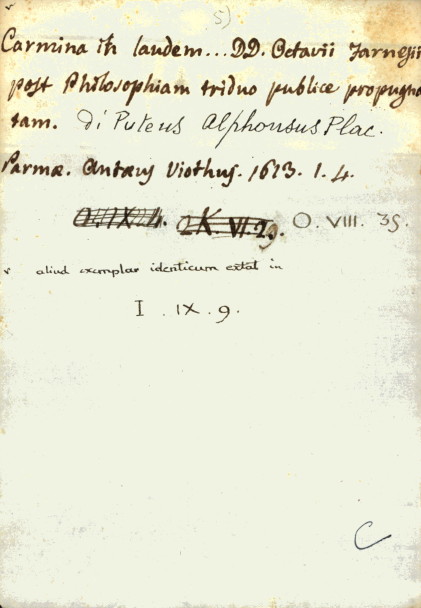 5)
Carmina in laudem... DD. Octavii Farnesii
post Philosophiam triduo publice propugna
tam. di Puteus Alphonsus Plac.
Parmæ. Antæus Viothus. 1613. 1. 4.
O. VIII. 35.
aliud exemplar identicum extat in
I. IX. 9.
C